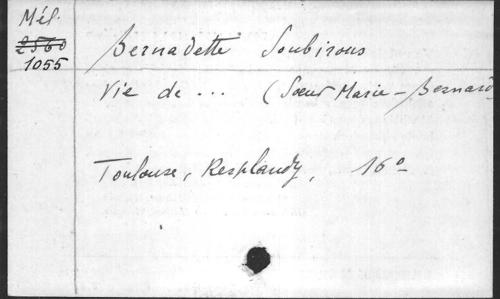 Mél.
2560
1055
Bernadette Soubirous
Vie de ... (Sœur Marie-Bernard)
Toulouse, Resplandy, 16°